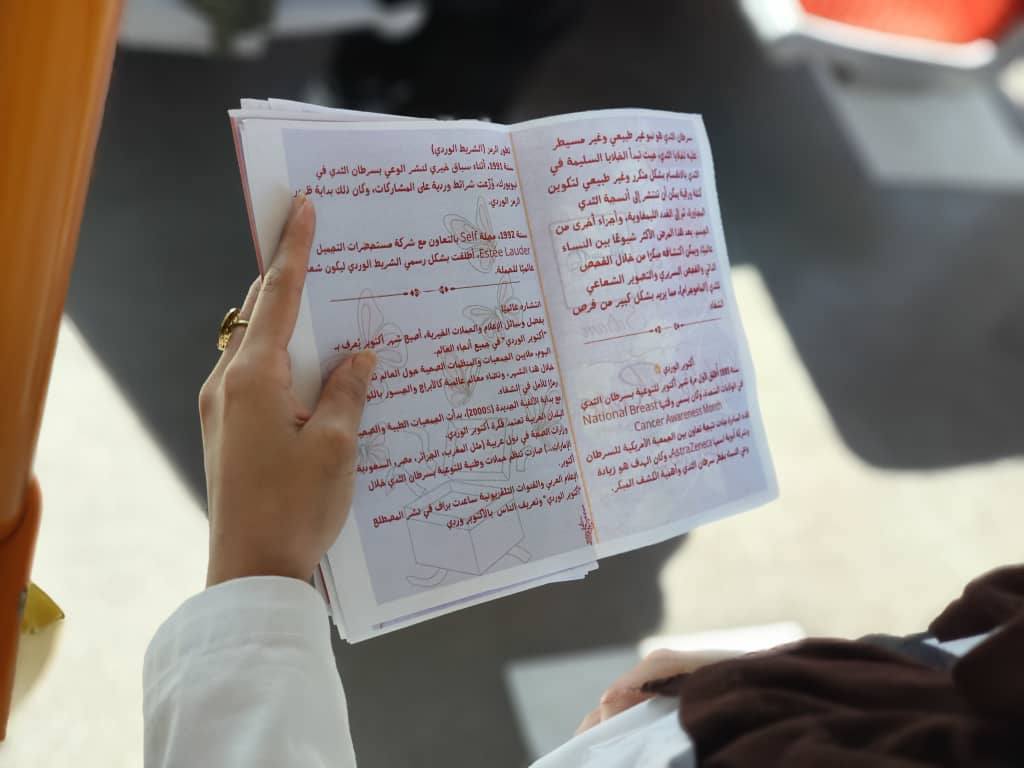 سرطان الثدي هو نمو غير طبيعي وغير مسيطر
عليه لخلايا الثدي، حيث تبدأ الخلايا السليمة في
الثدي بالانقسام بشكل متكرر وغير طبيعي لتكوين
كتلة ورمية يمكن أن تنتشر إلى أنسجة الثدي
المجاورة، ثم إلى الغدد الليمفاوية، وأجزاء أخرى من
الجسم. يعد هذا المرض الأكثر شيوعًا بين النساء
عالميًا، ويمكن اكتشافه مبكرًا من خلال الفحص
الذاتي والفحص السريري والتصوير الشعاعي
للثدي (الماموغرام)، مما يزيد بشكل كبير من فرص
الشفاء
أكتوبر الوردي
سنة 1985 أُطلق لأول مرة شهر أكتوبر للتوعية بسرطان الثدي
في الولايات المتحدة، وكان يسمى وقتها National Breast
Cancer Awareness Month
هذه المبادرة جاءت نتيجة تعاون بين الجمعية الأمريكية للسرطان
وشركة أدوية اسمها AstraZeneca، وكان الهدف هو زيادة
وعي النساء بخطر سرطان الثدي وأهمية الكشف المبكر.
تطور الرمز (الشريط الوردي)
سنة 1991، أثناء سباق خيري لنشر الوعي بسرطان الثدي في
نيويورك، وُزّعت شرائط وردية على المشاركات، وكان ذلك بداية
الرمز الوردي.
سنة 1992، مجلة Self بالتعاون مع شركة مستحضرات التجميل
Estée Lauder، أطلقت بشكل رسمي الشريط الوردي ليكون
عالميًا للحملة.
انتشاره عالميًا
بفضل وسائل الإعلام والحملات الخيرية، أصبح شهر أكتوبر يُعرف بـ
"أكتوبر الوردي" في جميع أنحاء العالم.
اليوم، ملايين الجمعيات والمنظمات الصحية حول العالم
خلال هذا الشهر، وتضاء معالم عالمية كالأبراج والجسور
رمزًا للأمل في الشفاء.
مع بداية الألفية الجديدة (2000s)، بدأت الجمعيات الطبية
البلدان العربية تعتمد فكرة أكتوبر الوردي.
وزارات الصحة في دول عربية (مثل المغرب، الجزائر، مصر، السعودية
الإمارات..) صارت تنظم حملات وطنية للتوعية بسرطان الثدي خلال
أكتوبر.
الإعلام العربي والقنوات التلفزيونية ساعدت في نشر المصطلح
"أكتوبر الوردي" وتعريف الناس بالأكتوبر وردي